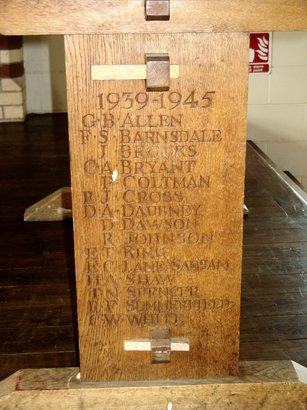 1939-1945
G·B·ALLEN
F·S·BARNSDALE
J·BROOKS
C·A·BRYANT
T·COLTMAN
R·J·CROSS
D·A·DAUBNEY
D·DAWSON
R·JOHNSON
E·T·KING
E·C·LANE-SANSAM
H·SHAW
T·N·SPENCER
SUMMERFIELD
W·WHITE